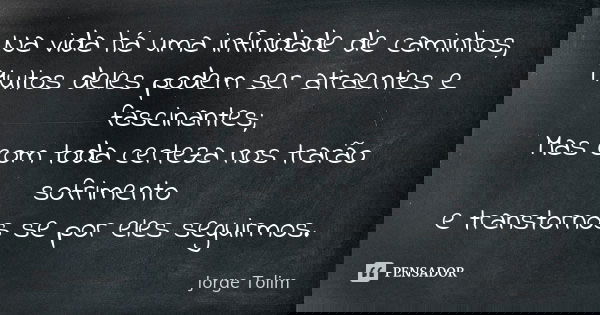 Na vida há uma infinidade de caminhos;
Muitos deles podem ser atraentes e
fascinantes;
Mas com toda certeza nos trarão
sofrimento
e transtornos se por eles seguirmos.
Jorge Tolim
PENSADOR